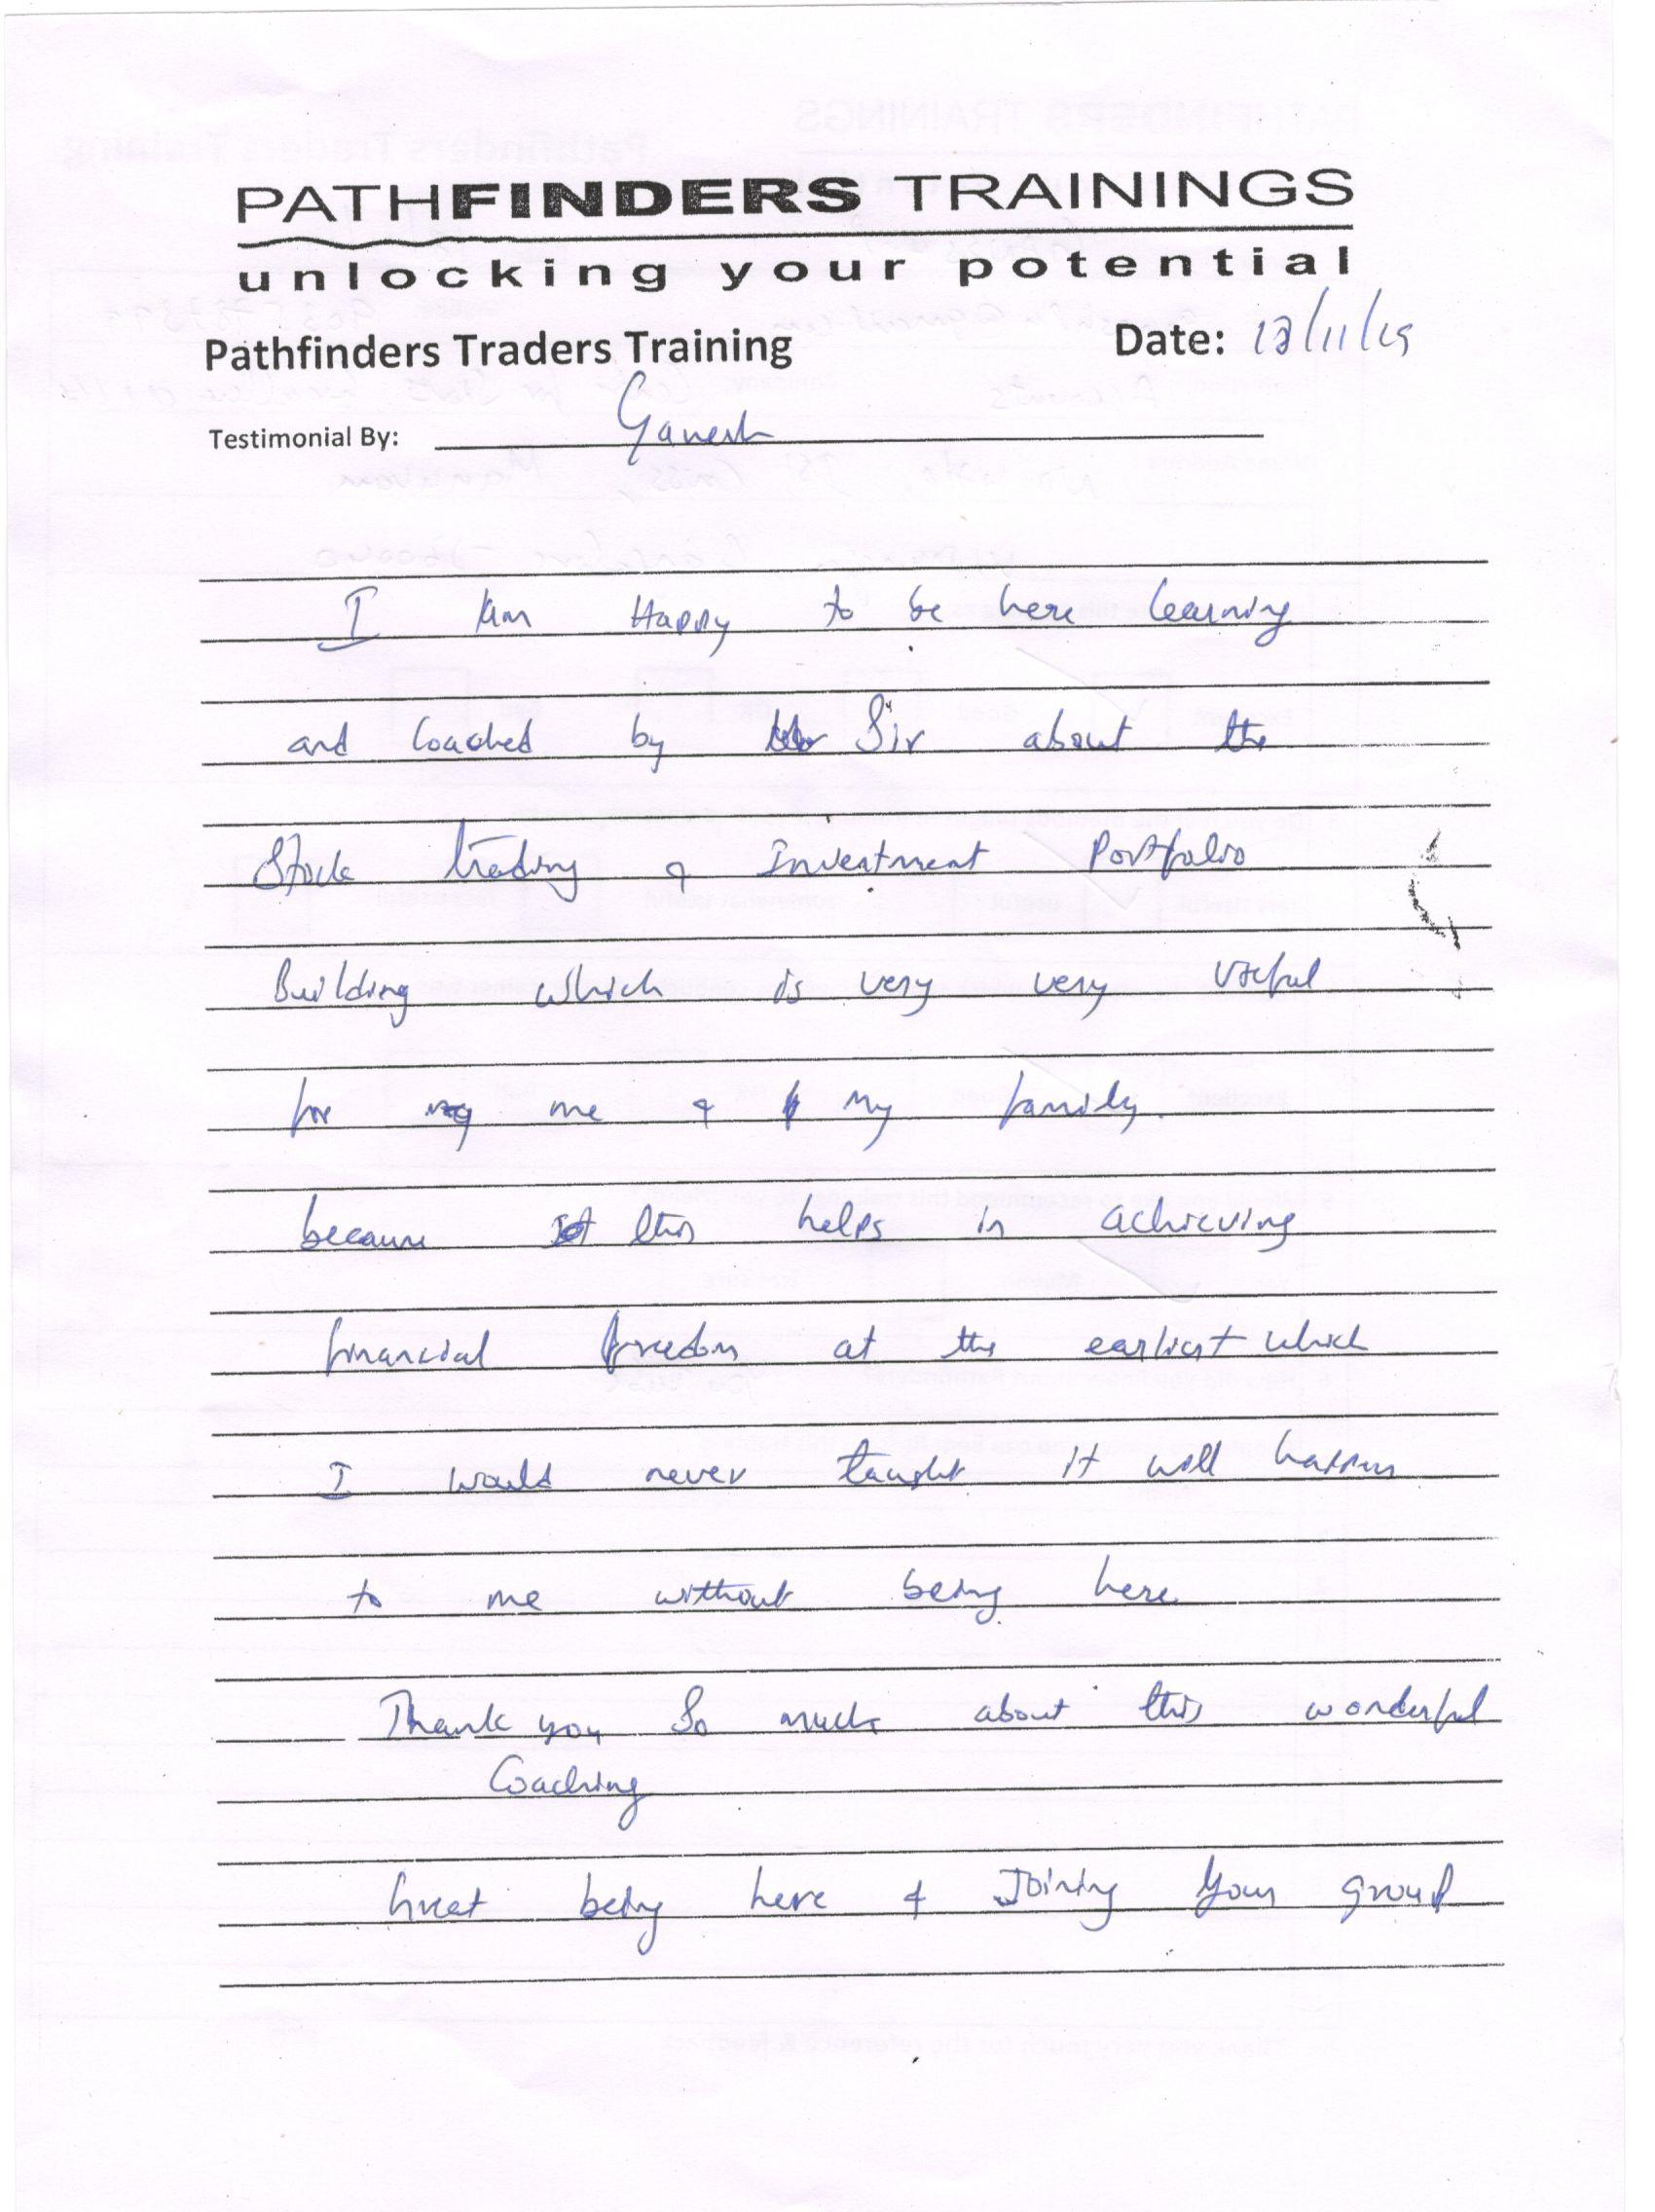 PATHFINDERS TRAININGS
unlocking your potential
Pathfinders Traders Training Date: 12/11/15
Testimonial By: Ganesh
I am Happy to be here learning
and Coached by Sir about the
Stock trading & Investment Portfolio
Building which is very very useful
for me & my family.
because this helps in achieving
financial freedom at the earliest which
I would never taught it will happen
to me without being here
Thank you So much about this wonderful
Coaching
Great being here & Joining your group